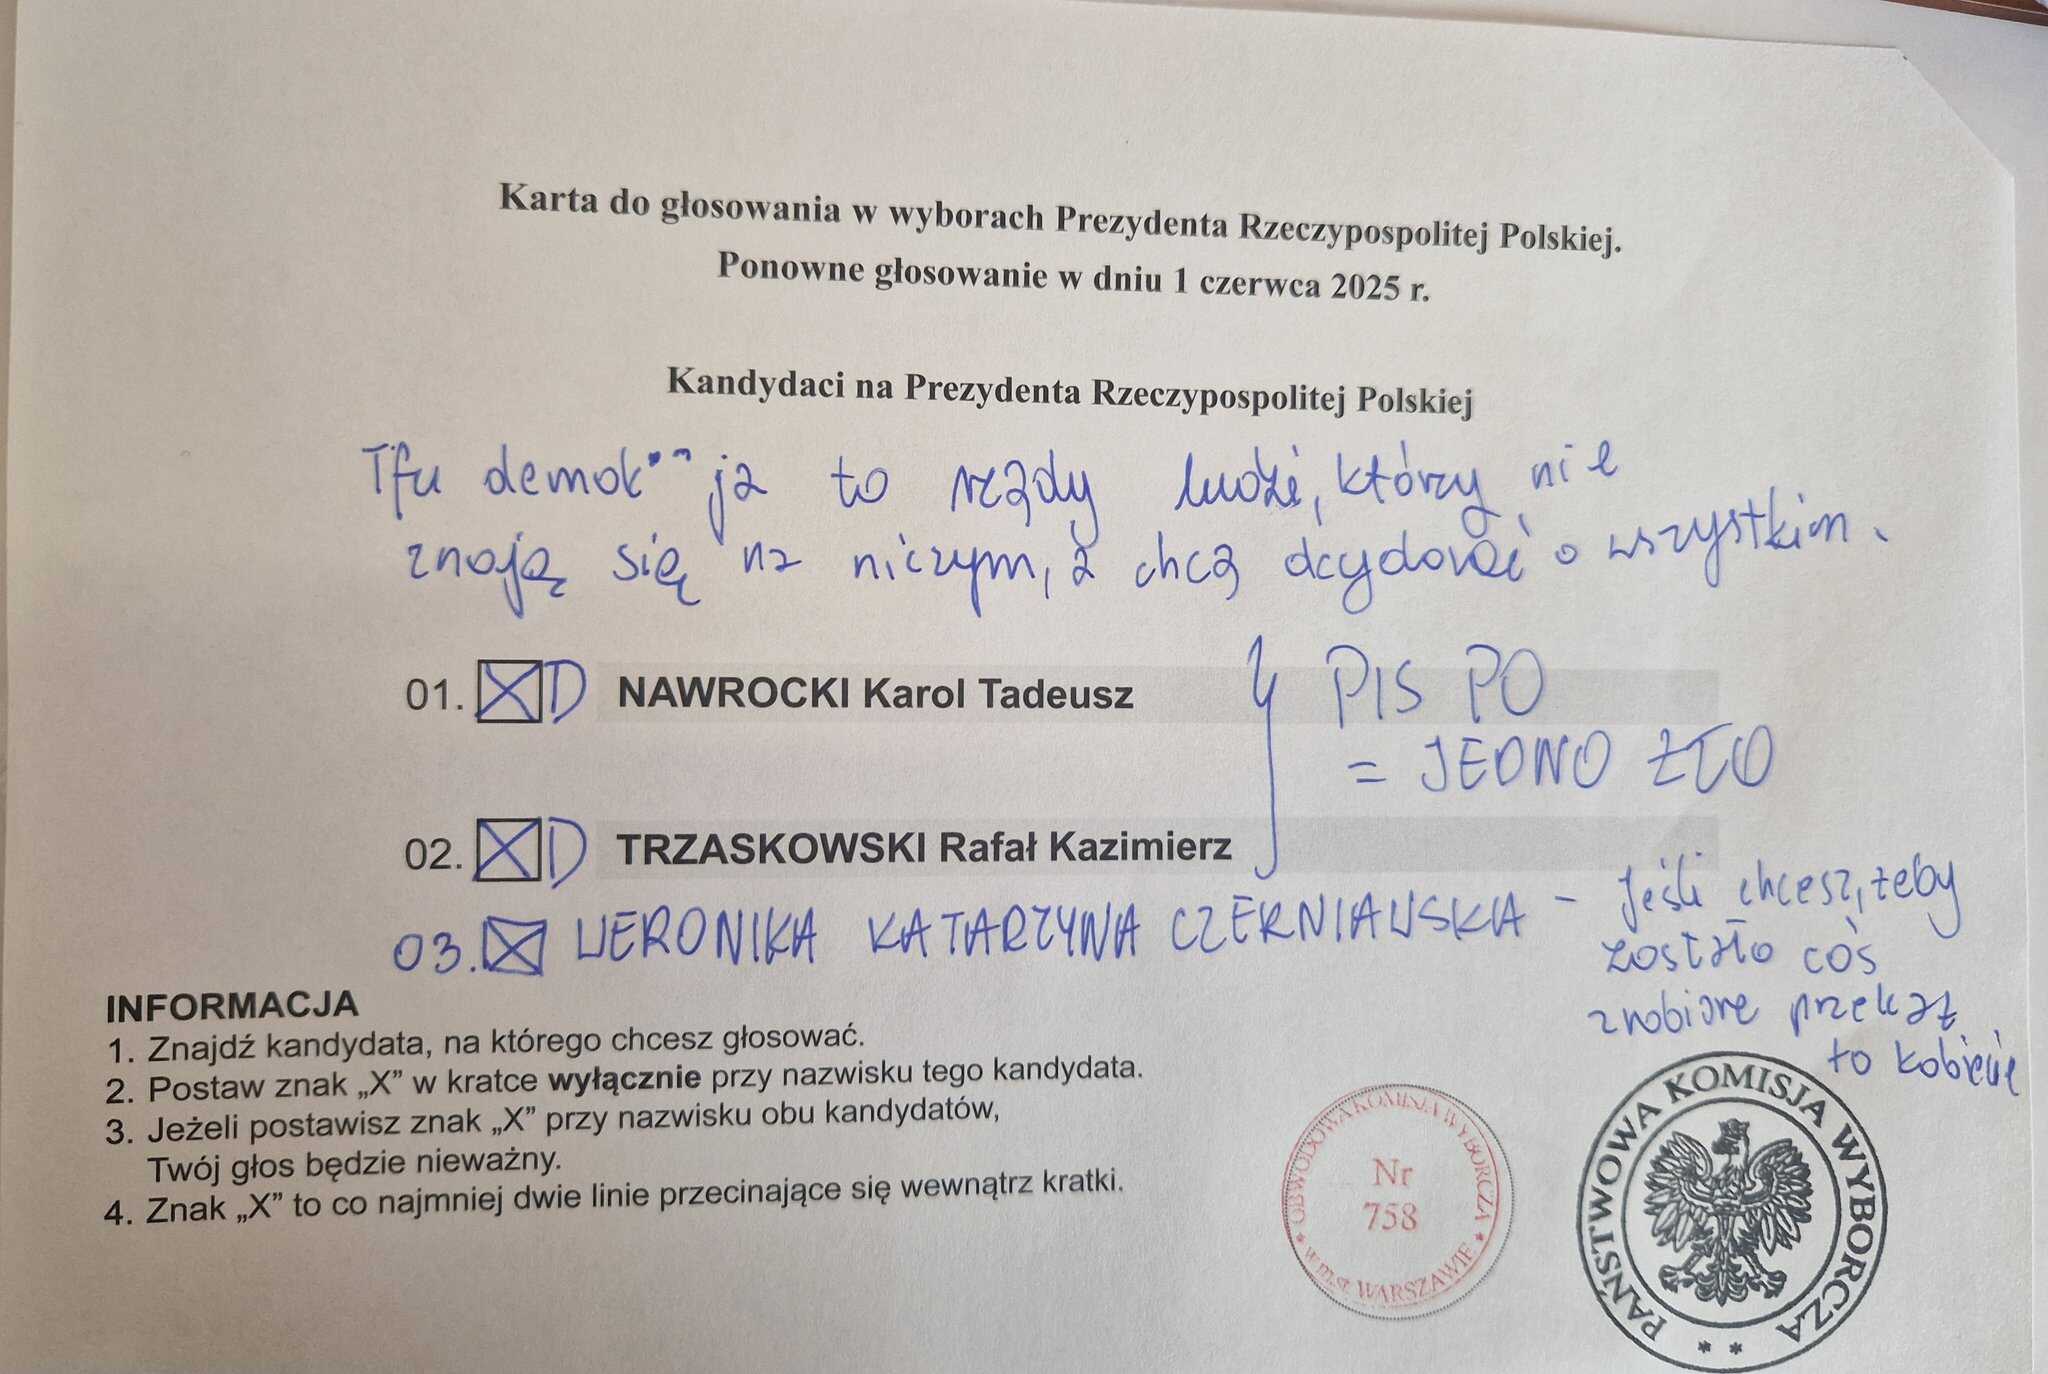 Karta do głosowania w wyborach Prezydenta Rzeczypospolitej Polskiej.
Ponowne głosowanie w dniu 1 czerwca 2025 r.
Kandydaci na Prezydenta Rzeczypospolitej Polskiej
Tfu demok**ja to rządy ludzi, którzy nie
znają się na niczym, a chcą dcydować o wszystkim.
01. XD NAWROCKI Karol Tadeusz
PIS PO
= JEDNO ZŁO
02. XD TRZASKOWSKI Rafał Kazimierz
03. X WERONIKA KATARZYNA CZERNIAWSKA - Jeśli chcesz, żeby
zostało coś
zrobione przekaż
to kobiecie
INFORMACJA
1. Znajdź kandydata, na którego chcesz głosować.
2. Postaw znak „X” w kratce wyłącznie przy nazwisku tego kandydata.
3. Jeżeli postawisz znak „X” przy nazwisku obu kandydatów,
Twój głos będzie nieważny.
4. Znak „X” to co najmniej dwie linie przecinające się wewnątrz kratki.
OBWODOWA KOMISJA WYBORCZA
Nr
758
w m.st. WARSZAWIE
PAŃSTWOWA KOMISJA WYBORCZA